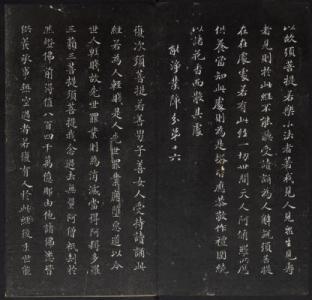 以故須菩提若樂小法者著我見人見眾生見壽
者見則於此經不能聽受讀誦為人解說須菩提
在在處處若有此經一切世間天人阿脩羅所應
供養當知此處則為是塔皆應恭敬作禮圍繞
以諸花香而散其處
能淨業障分第十六
復次須菩提若善男子善女人受持讀誦此
經若為人輕賤是人先世罪業應墮惡道以今
世人輕賤故先世罪業則為消滅當得阿耨多羅
三藐三菩提須菩提我念過去無量阿僧祇劫於
然燈佛前得值八百四千萬億那由他諸佛悉皆
供養承事無空過者若復有人於此經後末世能